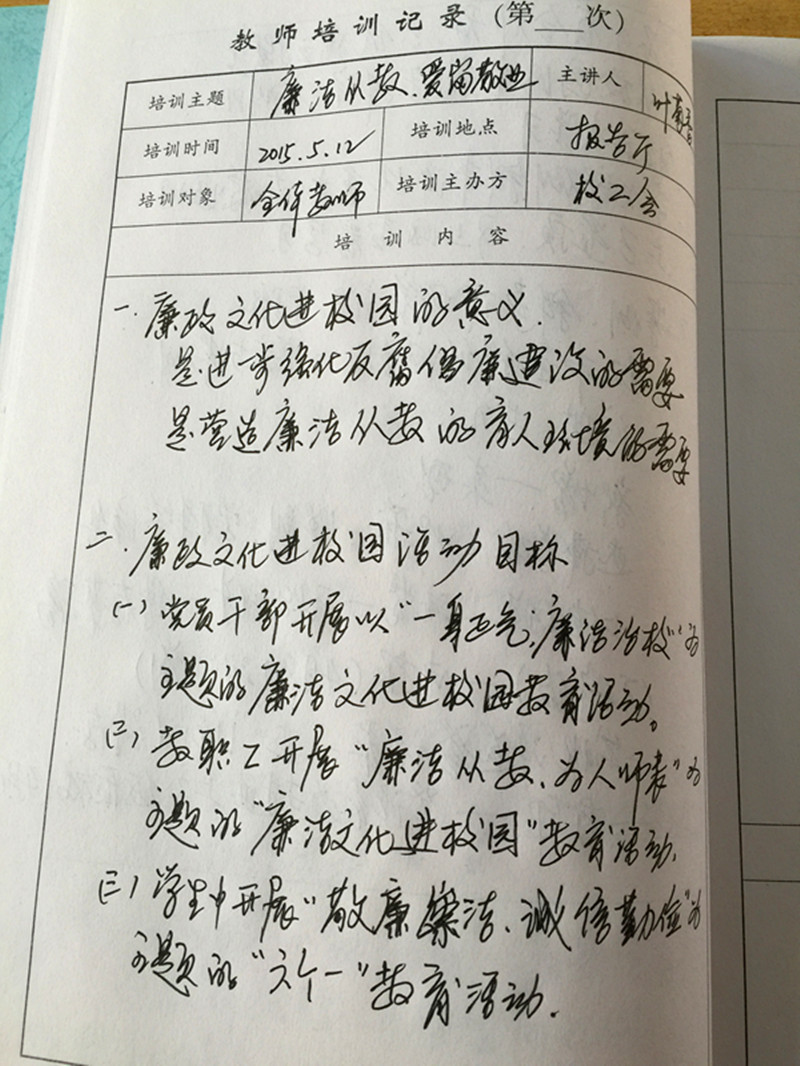 教师培训记录（第___次）
培训主题 廉洁从教、爱岗敬业 主讲人 叶
培训时间 2015.5.12 培训地点 报告厅
培训对象 全体教师 培训主办方 校工会
培训内容
一.廉政文化进校园的意义.
是进步强化反腐倡廉建设的需要
是营造廉洁从教的育人环境的需要
二.廉政文化进校园活动目标
(一)党员干部开展以"一身正气,廉洁治校"为
主题的廉洁文化进校园教育活动。
(二)教职工开展"廉洁从教、为人师表"为
主题的"廉洁文化进校园"教育活动.
(三)学生中开展"敬廉崇洁、诚信勤俭"为
主题的"六个一"教育活动.